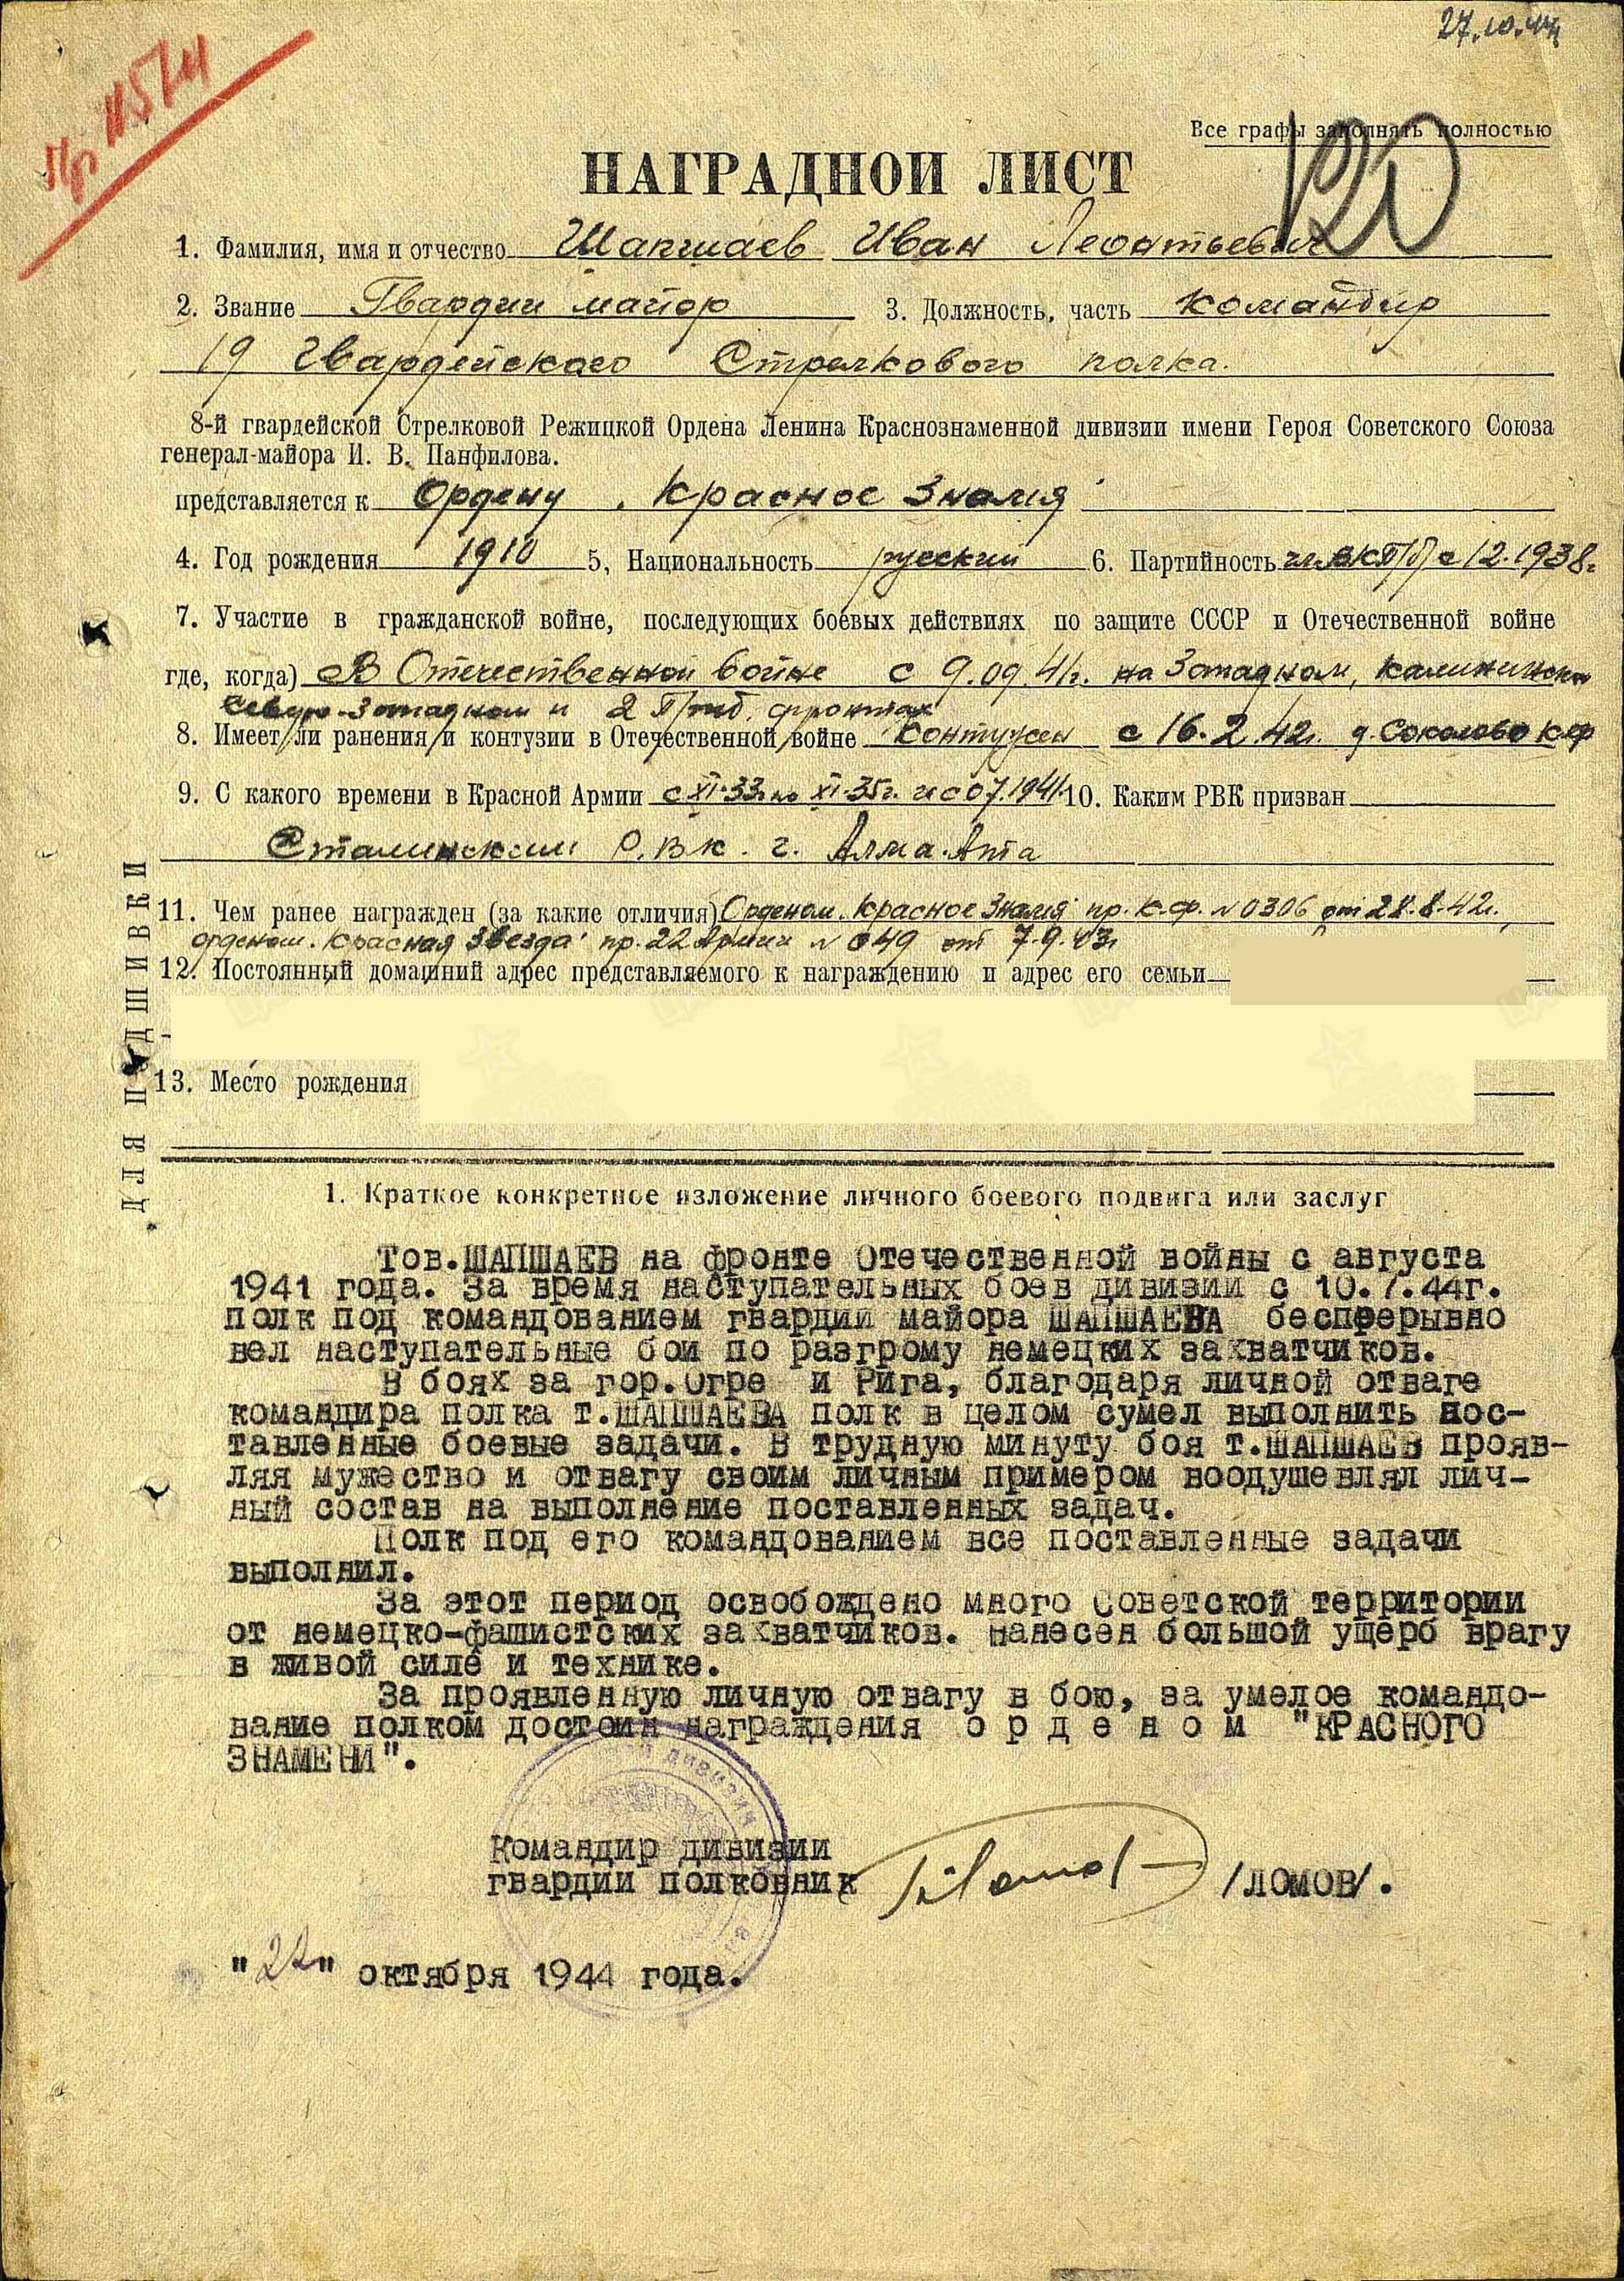 27.10.44
Пр 1157/Н
Все графы заполнять полностью
120
НАГРАДНОЙ ЛИСТ
1. Фамилия, имя и отчество Шапшаев Иван Леонтьевич
2. Звание Гвардии майор 3. Должность, часть командир
19 Гвардейского Стрелкового полка.
8-й гвардейской Стрелковой Режицкой Ордена Ленина Краснознаменной дивизии имени Героя Советского Союза
генерал-майора И. В. Панфилова.
представляется к Ордену "Красное Знамя"
4. Год рождения 1910 5, Национальность русский 6. Партийность чл. ВКП/б/ с 12.1938г
7. Участие в гражданской войне, последующих боевых действиях по защите СССР и Отечественной войне
где, когда) В Отечественной войне с 9.09.41г. на Западном, Калининском
Северо-Западном и 2 Приб. фронтах
8. Имеет ли ранения и контузии в Отечественной войне Контужен с 16.2.42г. д. Соколово К.Ф
9. С какого времени в Красной Армии с XI.33г по XI.35г. и с 07.1941 10. Каким РВК призван
Сталинским Р.В.К. г. Алма-Ата
11. Чем ранее награжден (за какие отличия) Орденом "Красное Знамя" пр. К.Ф. №0306 от 28.8.42г.,
орденом "Красная Звезда" пр. 22 Армии № 049 от 7.9.43г
12. Постоянный домашний адрес представляемого к награждению и адрес его семьи
13. Место рождения
ДЛЯ ПОДШИВКИ
1. Краткое конкретное изложение личного боевого подвига или заслуг
Тов.ШАПШАЕВ на фронте Отечественной войны с августа
1941 года. За время наступательных боев дивизии с 10.7.44г.
полк под командованием гвардии майора ШАПШАЕВА беспрерывно
вел наступательные бои по разгрому немецких захватчиков.
В боях за гор.Огре и Рига, благодаря личной отваге
командира полка т.ШАПШАЕВА полк в целом сумел выполнить пос-
тавленные боевые задачи. В трудную минуту боя т.ШАПШАЕВ прояв-
ляя мужество и отвагу своим личным примером воодушевлял лич-
ный состав на выполнение поставленных задач.
Полк под его командованием все поставленные задачи
выполнил.
За этот период освобождено много Советской территории
от немецко-фашистских захватчиков. Нанесен большой ущерб врагу
в живой силе и технике.
За проявленную личную отвагу в бою, за умелое командо-
вание полком достоин награждения о р д е н о м "КРАСНОГО
ЗНАМЕНИ".
дивизии
Командир дивизии
гвардии полковник /ЛОМОВ/.
"22" октября 1944 года.